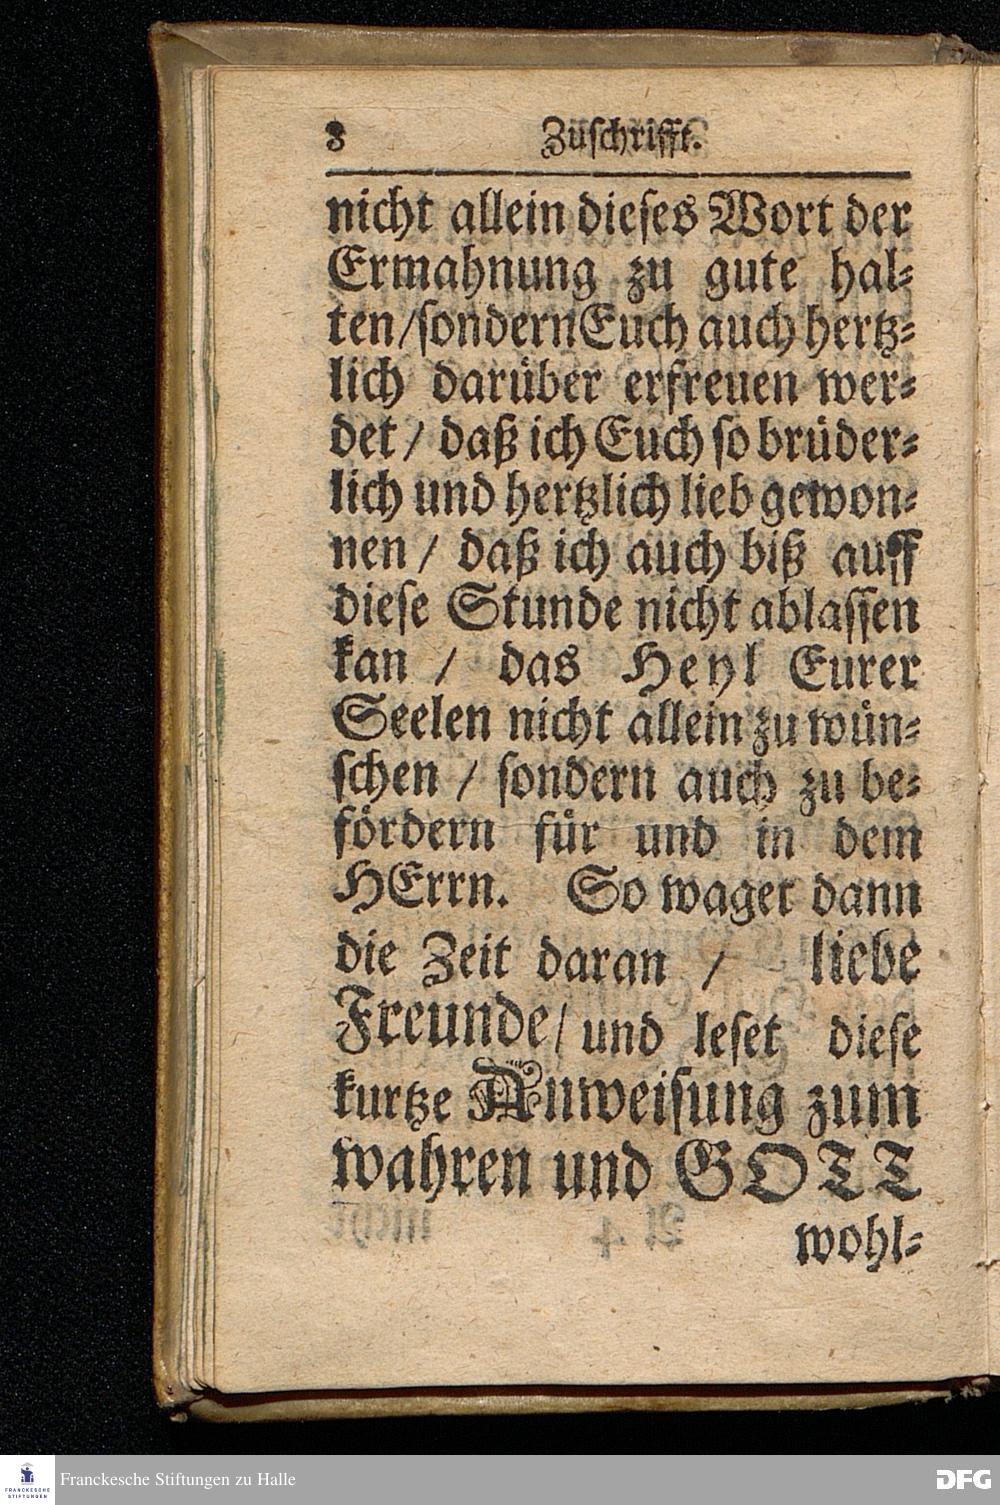 8 Zuſchrifft.
nicht allein dieſes Wort der
Ermahnung zu gute hal-
ten/ſondern Euch auch hertz-
lich darüber erfreuen wer-
det / daß ich Euch ſo brüder-
lich und hertzlich lieb gewon-
nen / daß ich auch biß auff
dieſe Stunde nicht ablaſſen
kan / das Heyl Eurer
Seelen nicht allein zu wün-
ſchen / ſondern auch zu be-
fördern für und in dem
HErrn. So waget dann
die Zeit daran / liebe
Freunde/ und leſet dieſe
kurtze Anweiſung zum
wahren und GOTT
wohl-
FRANCKESCHE
STIFTUNGEN
Franckesche Stiftungen zu Halle
DFG